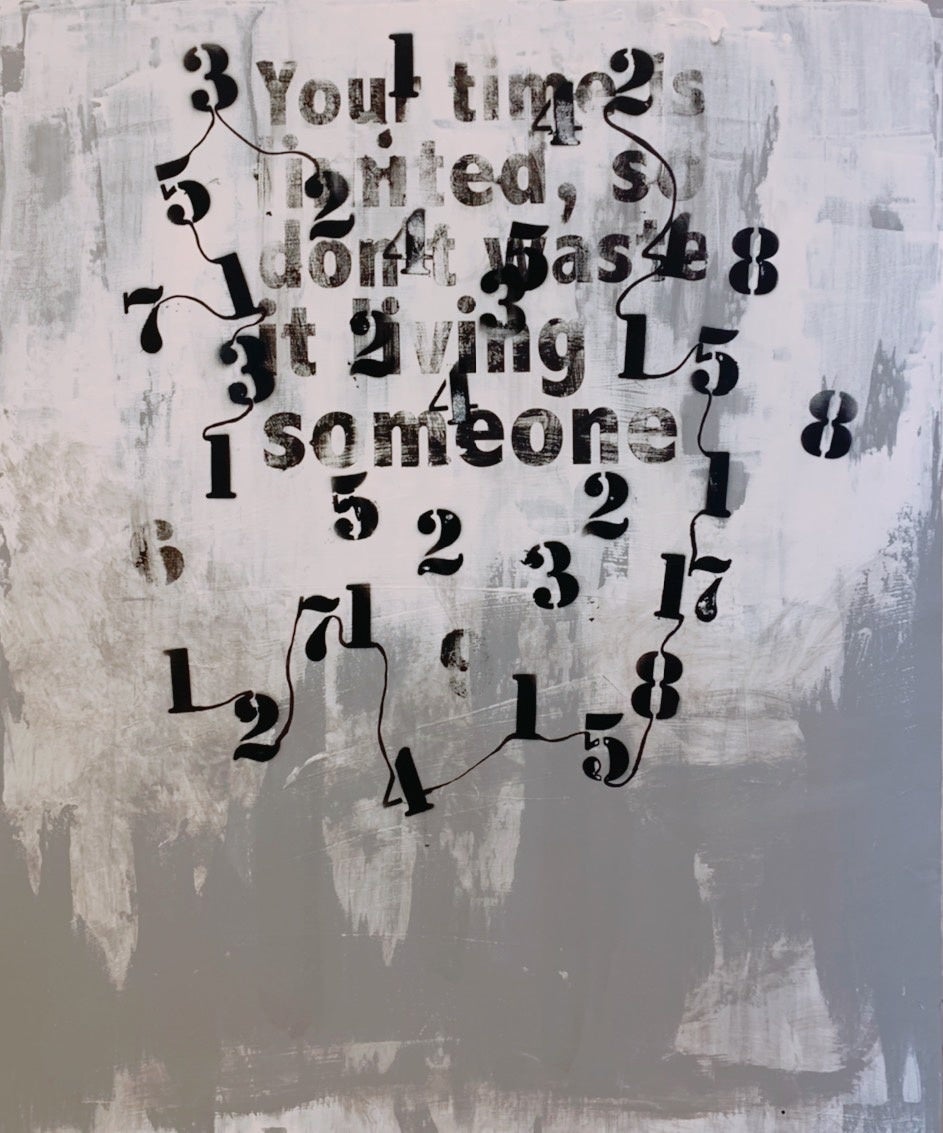 Your time is
limited, so
don't waste
it living
someone
3 1 2
4
5 2
4 5 4 8
7 1 3
3 2 1 5
4 8
1 1
5 2 2
6 3 17
71
1 8
2 1 5
4